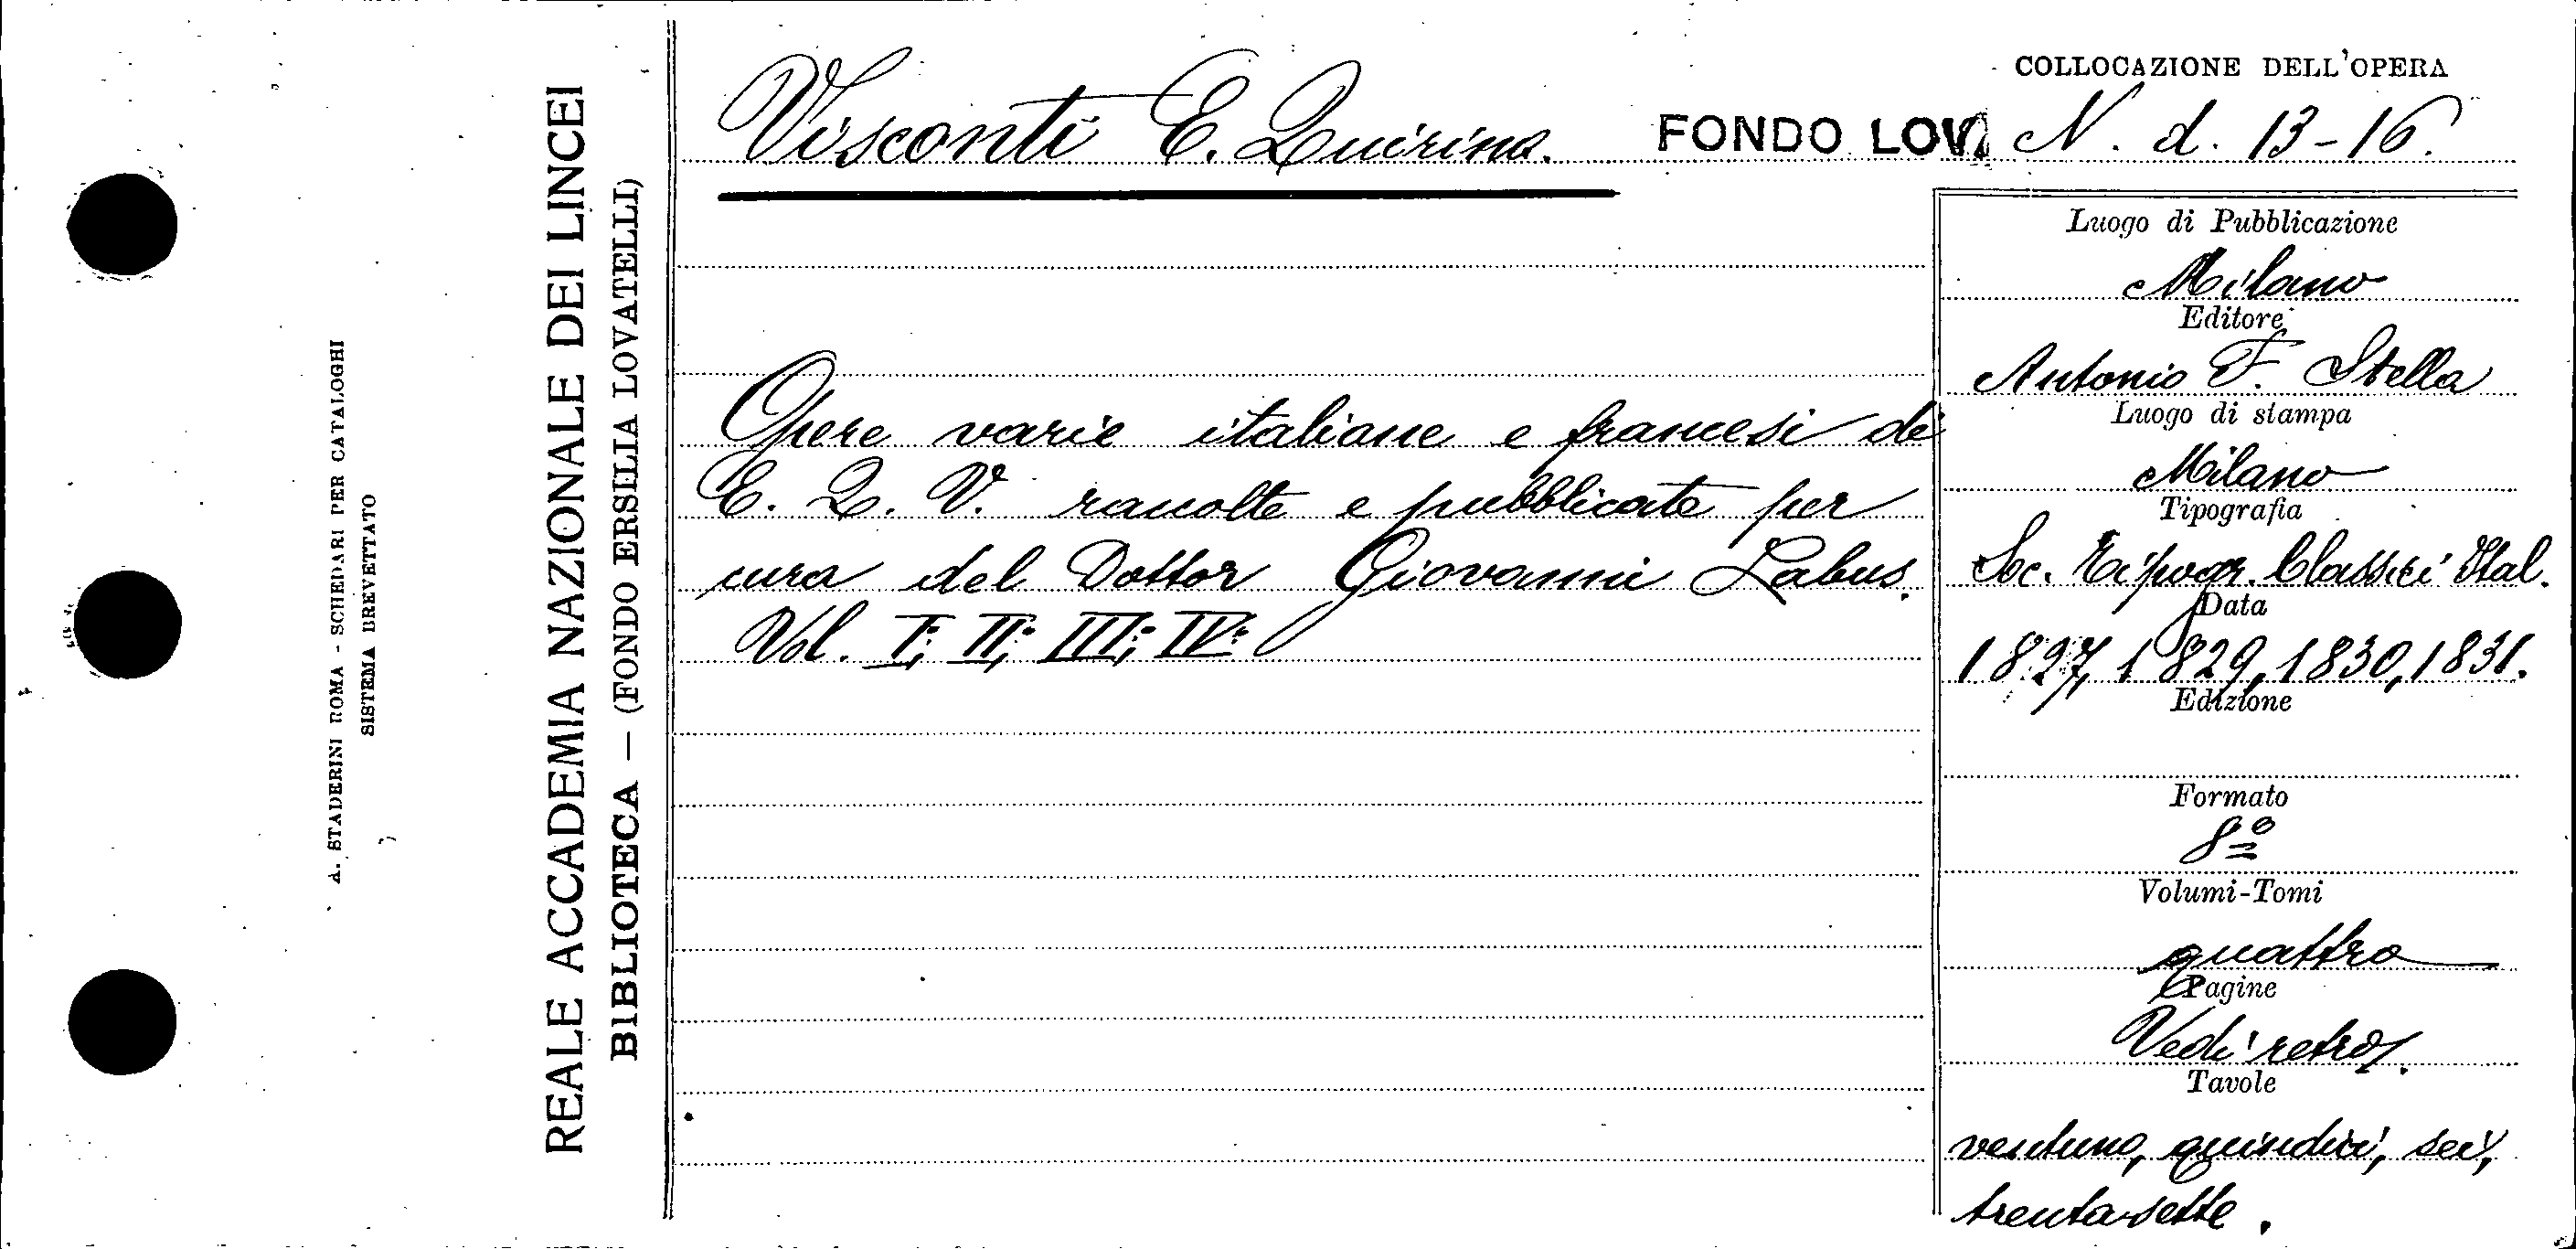 A. STADERINI ROMA - SCHEDARI PER CATALOGHI
SISTEMA BREVETTATO
REALE ACCADEMIA NAZIONALE DEI LINCEI
BIBLIOTECA — (FONDO ERSILIA LOVATELLI)
Visconti E. Quirino.
FONDO LOV.
COLLOCAZIONE DELL'OPERA
N. d. 13-16.
Opere varie italiane e francesi di
E. Q. V. raccolte e pubblicate per
cura del Dottor Giovanni Labus.
Vol. I; II; III; IV:
Luogo di Pubblicazione
Milano
Editore
Antonio F. Stella
Luogo di stampa
Milano
Tipografia
Soc. Tipogr. Classici Ital.
Data
1827, 1829, 1830, 1831.
Edizione
Formato
8º
Volumi-Tomi
quattro
Pagine
Vedi retro.
Tavole
ventuno, quindici, sei,
trentasette.